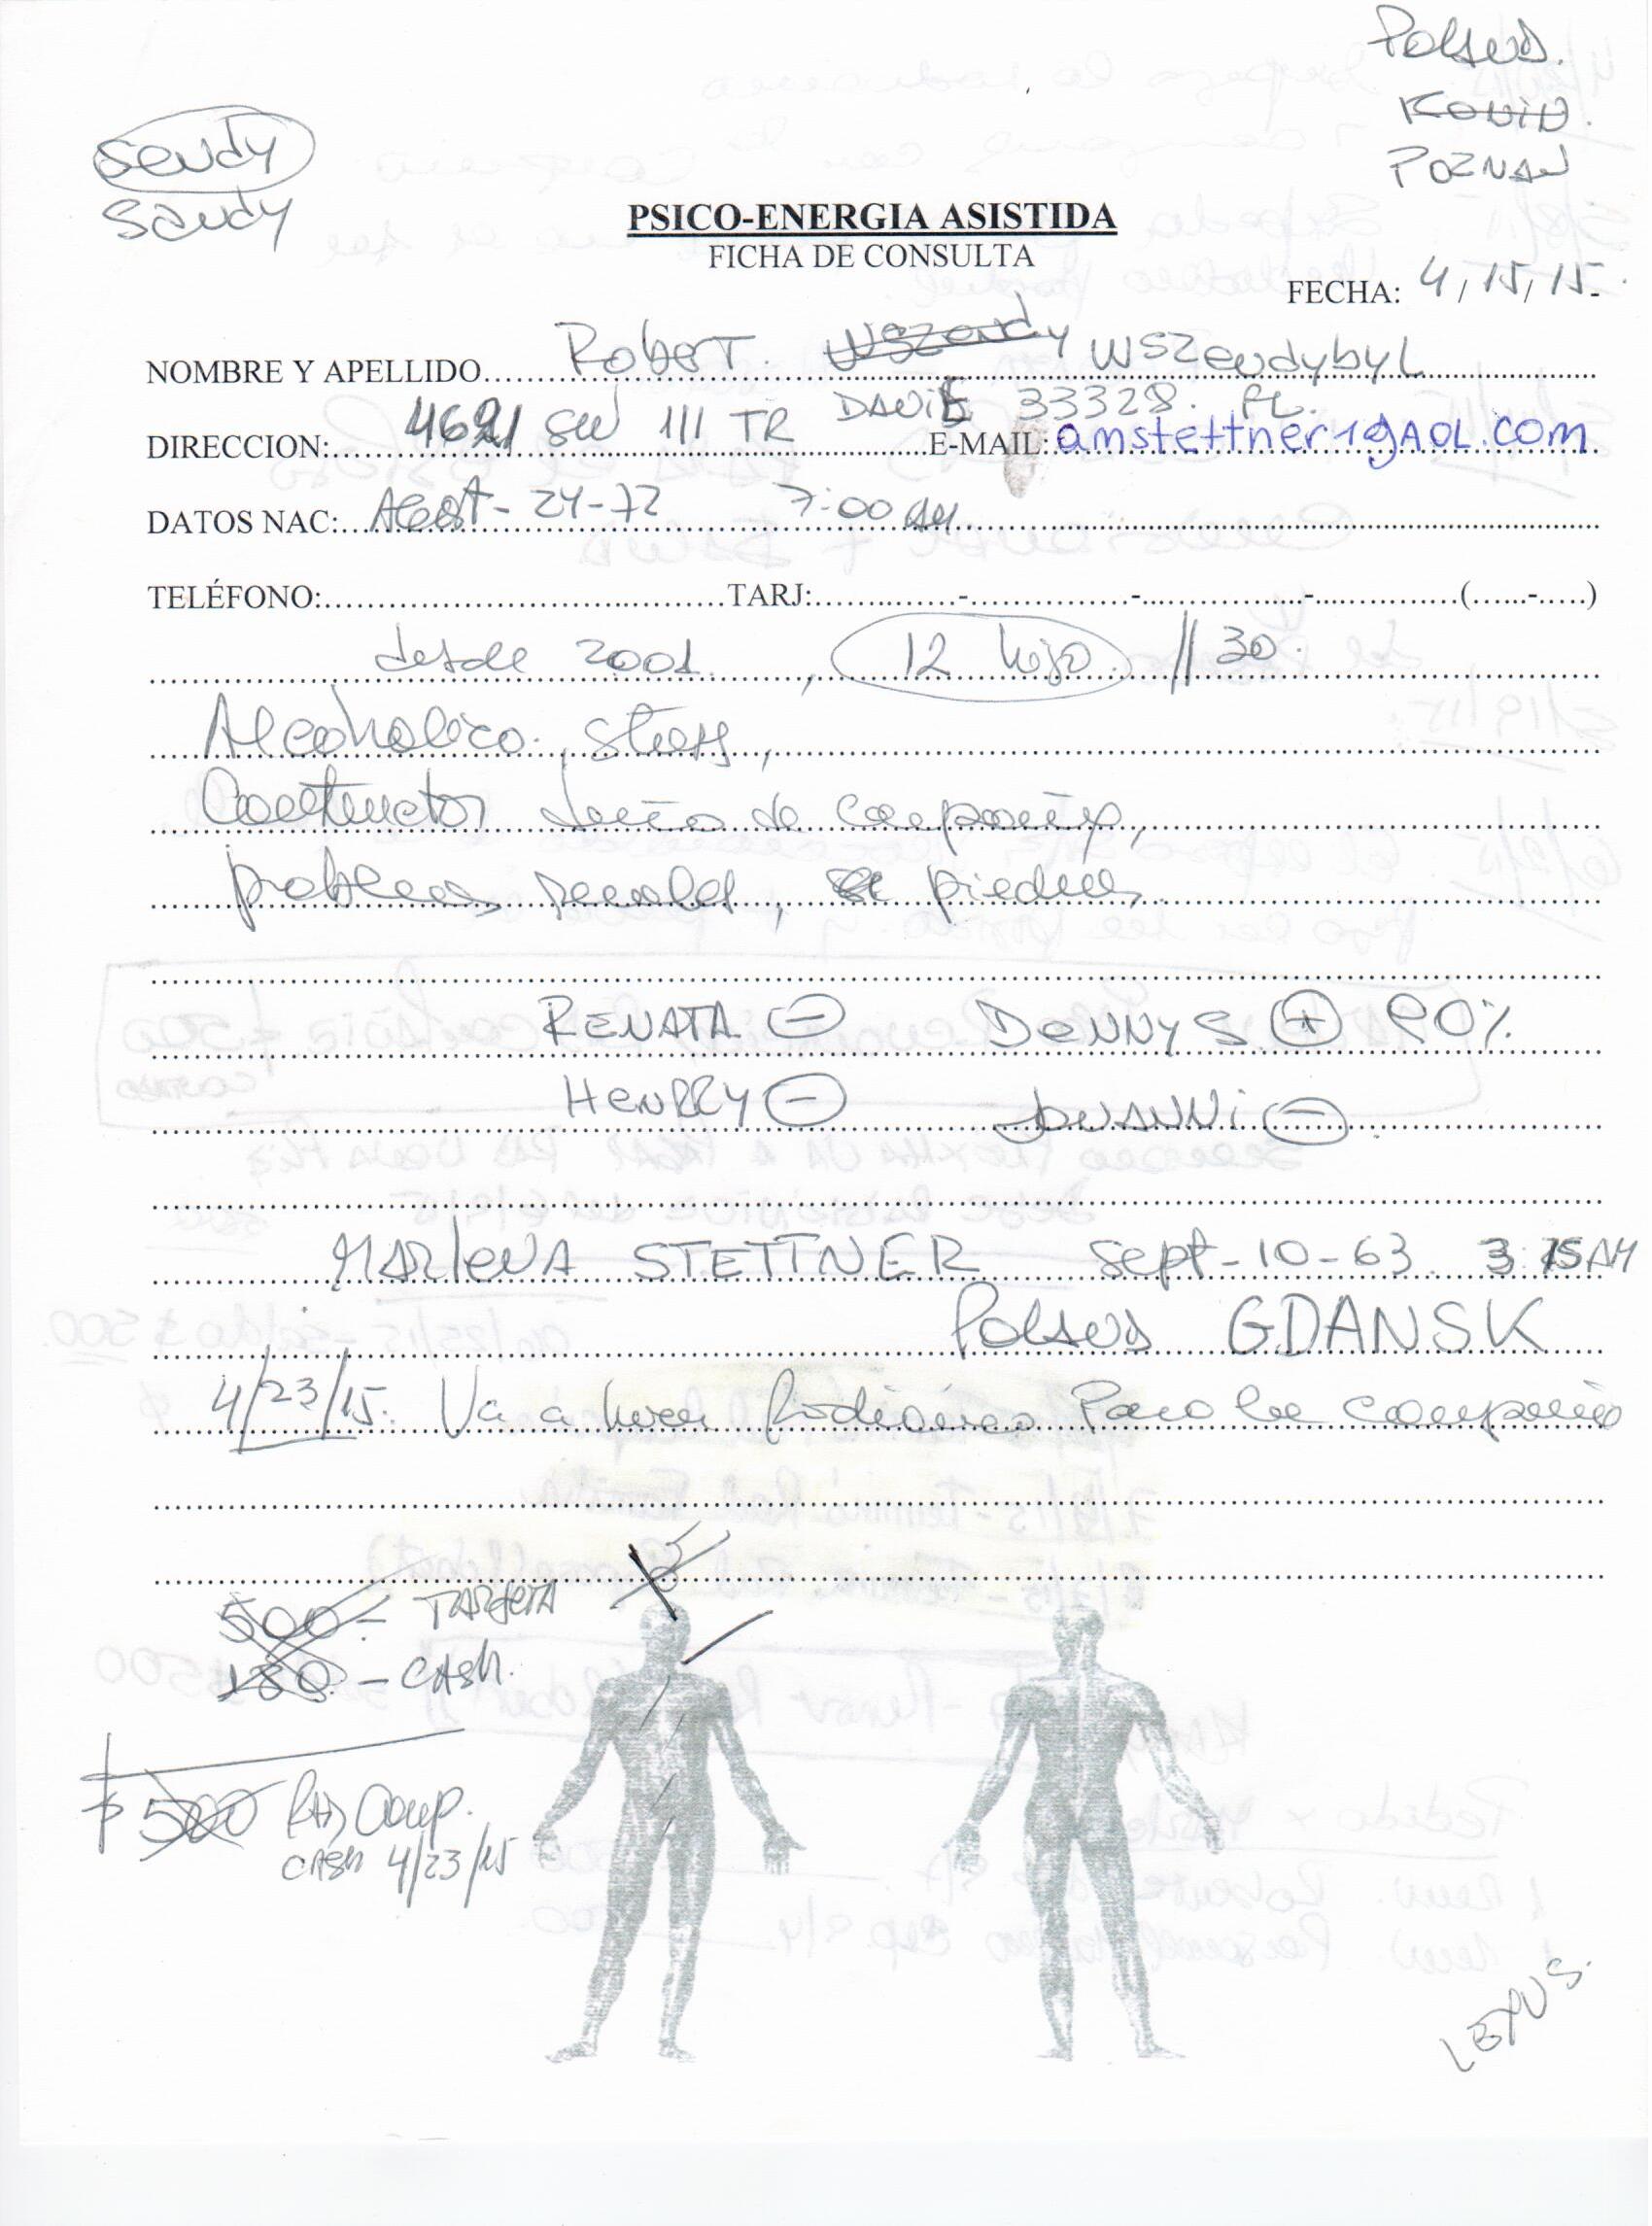 Poland.
Konin.
POZNAN
Sendy
Sandy
PSICO-ENERGIA ASISTIDA
FICHA DE CONSULTA
FECHA: 4/15/15-
NOMBRE Y APELLIDO Robert. WSZendy WSZendybyL
DIRECCION: 4621 SW 111 TR DAVIE 33328. FL. E-MAIL: amstettner1@AOL.COM
DATOS NAC: Agost- 24-72 7:00 AM.
TELÉFONO: TARJ: - - - ( - )
desde 2001, 12 hijo. // 30.
Alcoholico. stress,
Constructor dueño de compañia,
problemas renales, piedras
RENATA (-) DENNYS (+) 90%
HENRRY (-) (-)
MARLENA STETTNER Sept-10-63. 3:15 AM
Poland GDANSK
4/23/15. Va a hacer Radionica Para la compañia
500 - TARJETA
180 - CASH.
$ 500 RAD Comp.
CASH 4/23/15
LEXUS.